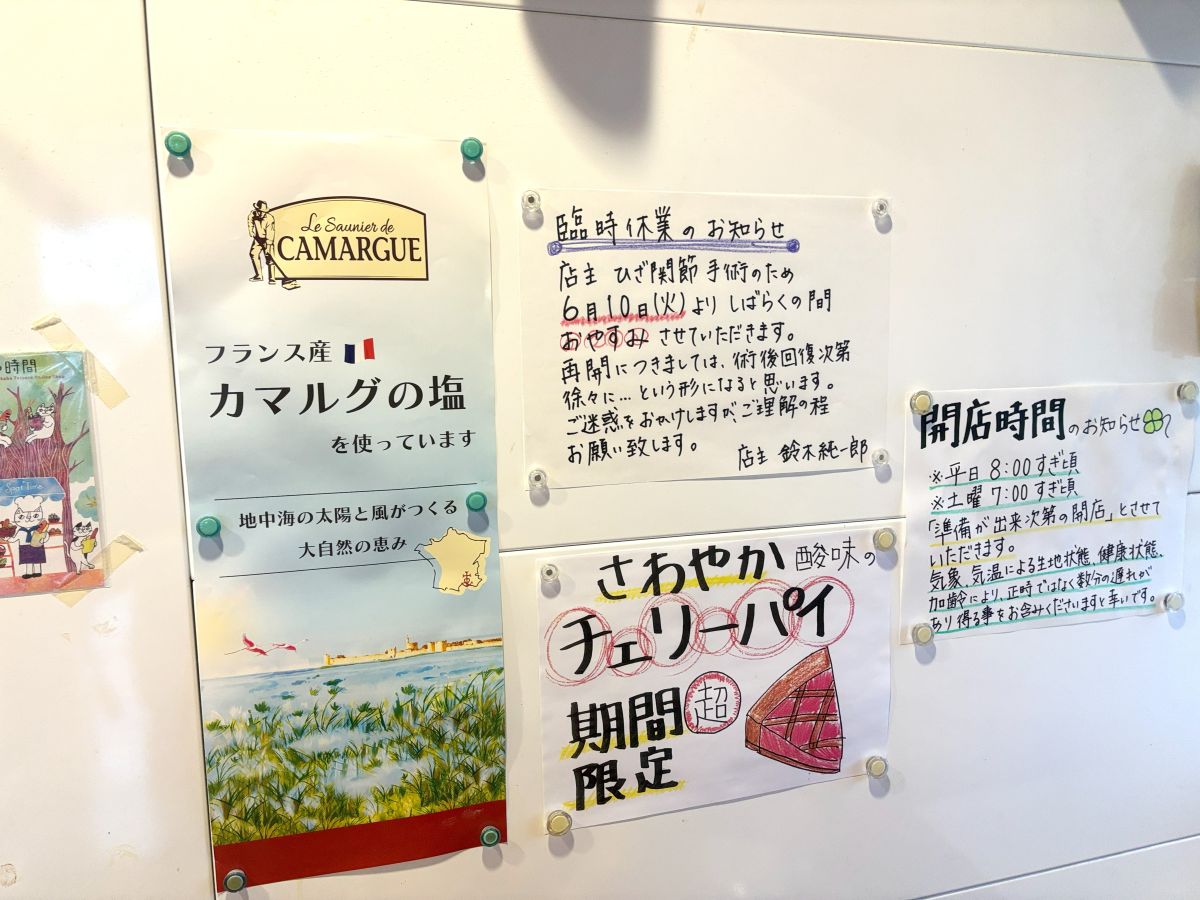 Le Saunier de
CAMARGUE
フランス産
カマルグの塩
を使っています
地中海の太陽と風がつくる
大自然の恵み
臨時休業のお知らせ
店主 ひざ関節手術のため
6月10日(火)よりしばらくの間
おやすみさせていただきます。
再開につきましては、術後回復次第
徐々に…という形になると思います。
ご迷惑をおかけしますが、ご理解の程
お願い致します。
店主 鈴木純一郎
さわやか酸味の
チェリーパイ
超
期間
限定
開店時間のお知らせ
※平日 8:00すぎ頃
※土曜 7:00すぎ頃
「準備が出来次第の開店」とさせて
いただきます。
気象、気温による生地状態、健康状態、
加齢により、正時ではなく数分の遅れが
あり得る事をお含みくださいますと幸いです。
時間